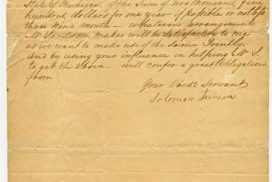 State of Michigan of the Sum of two thousand five
hundred dollars for one year if possible or not less
than Nine month - whatever arrangement
Mr. makes will be satisfactory to me
as we want to make use of the Same Jointly
and by using your influence in helping Mr S.
to get the above - will confer a great Obligation
from
Your Obdt Servant
Solomon